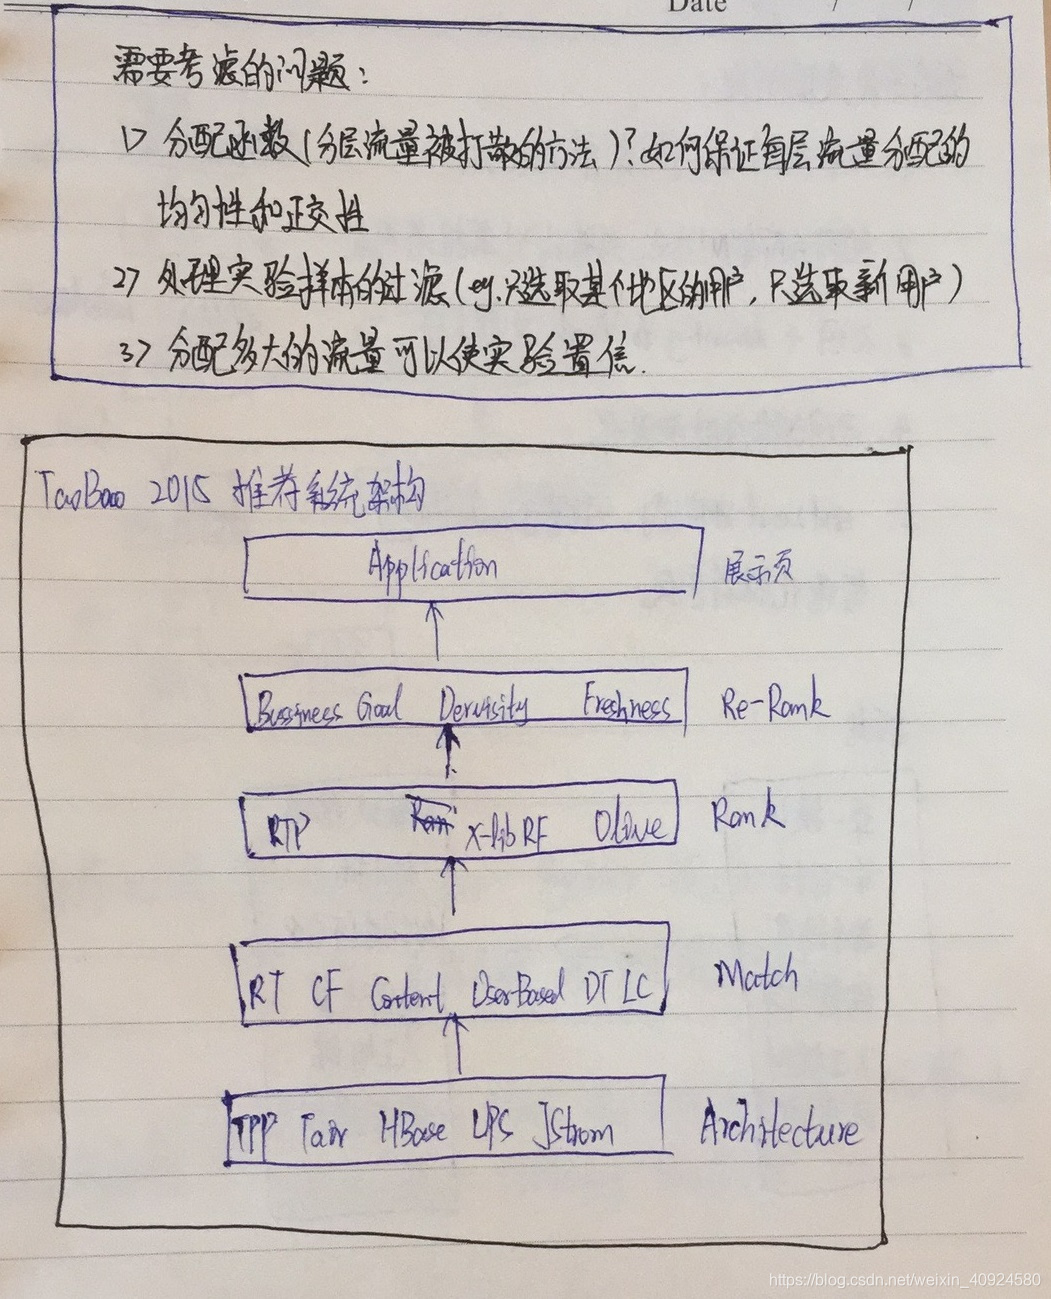 Date / /
需要考虑的问题：
1> 分配函数(分层流量被打散的方法)？如何保证每层流量分配的
均匀性和正交性
2> 处理实验样本的过滤(eg.只选取某个地区的用户，只选取新用户)
3> 分配多大的流量可以使实验置信.
TaoBao 2015 推荐系统架构
Application 展示页
Bussiness Goal Dervisity Freshness Re-Rank
RTP X-lib RF Olive Rank
RT CF Content UserBased DT LC Match
TPP Tair HBase UPS JStrom Architecture
https://blog.csdn.net/weixin_40924580